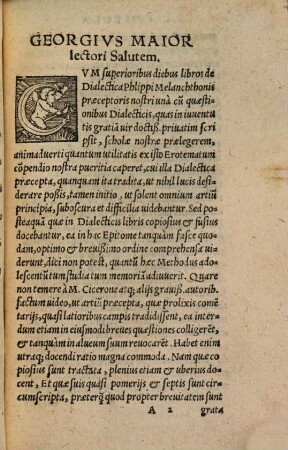 GEORGIVS MAIOR
lectori Salutem.
CVM superioribus diebus libros de
Dialectica Phlippi Melanchthonis
præceptoris nostri unà cũ quæsti-
onibus Dialecticis, quas in iuuentu
tis gratiã uir doctiß. priuatim scri
psit, scholæ nostræ prælegerem,
animaduerti quantum utilitatis ex isto Erotematum
cõpendio nostra pueritia caperet, cui illa Dialecticæ
præcepta, quanquam ita tradita, ut nihil lucis desy
derare poßis, tamen initio, ut solent omnium artiũ
principia, subobscura et difficilia uidebantur. Sed po-
steaquã quæ in Dialecticis libris copiosius & fusius
docebantur, ea in hac Epitome tanquàm fasce quo-
dam, optimo & breuißimo ordine comprehensa uide
rentur, dici non potest, quantũ hæc Methodus ado-
lescentũ tum studia tum memoriã adiuuerit. Quare
non temere à M. Cicerone atq; alijs grauiß. autorib.
factum video, ut artiũ præcepta, quæ prolixis cõmẽ
tarijs, quasi latioribus campis tradidissent, ea inter-
dum etiam in eiusmodi breues quæstiones colligerẽt,
& tanquàm in alueum suum reuocarẽt. Habet enim
utraq; docendi ratio magna commoda. Nam quæ co
piosius sunt tractata, plenius etiam & uberius do-
cent, Et quæ suis quasi pomerijs & septis sunt cir-
cumscripta, præterq̃ quod propter breuitatem sunt
A 2 grata